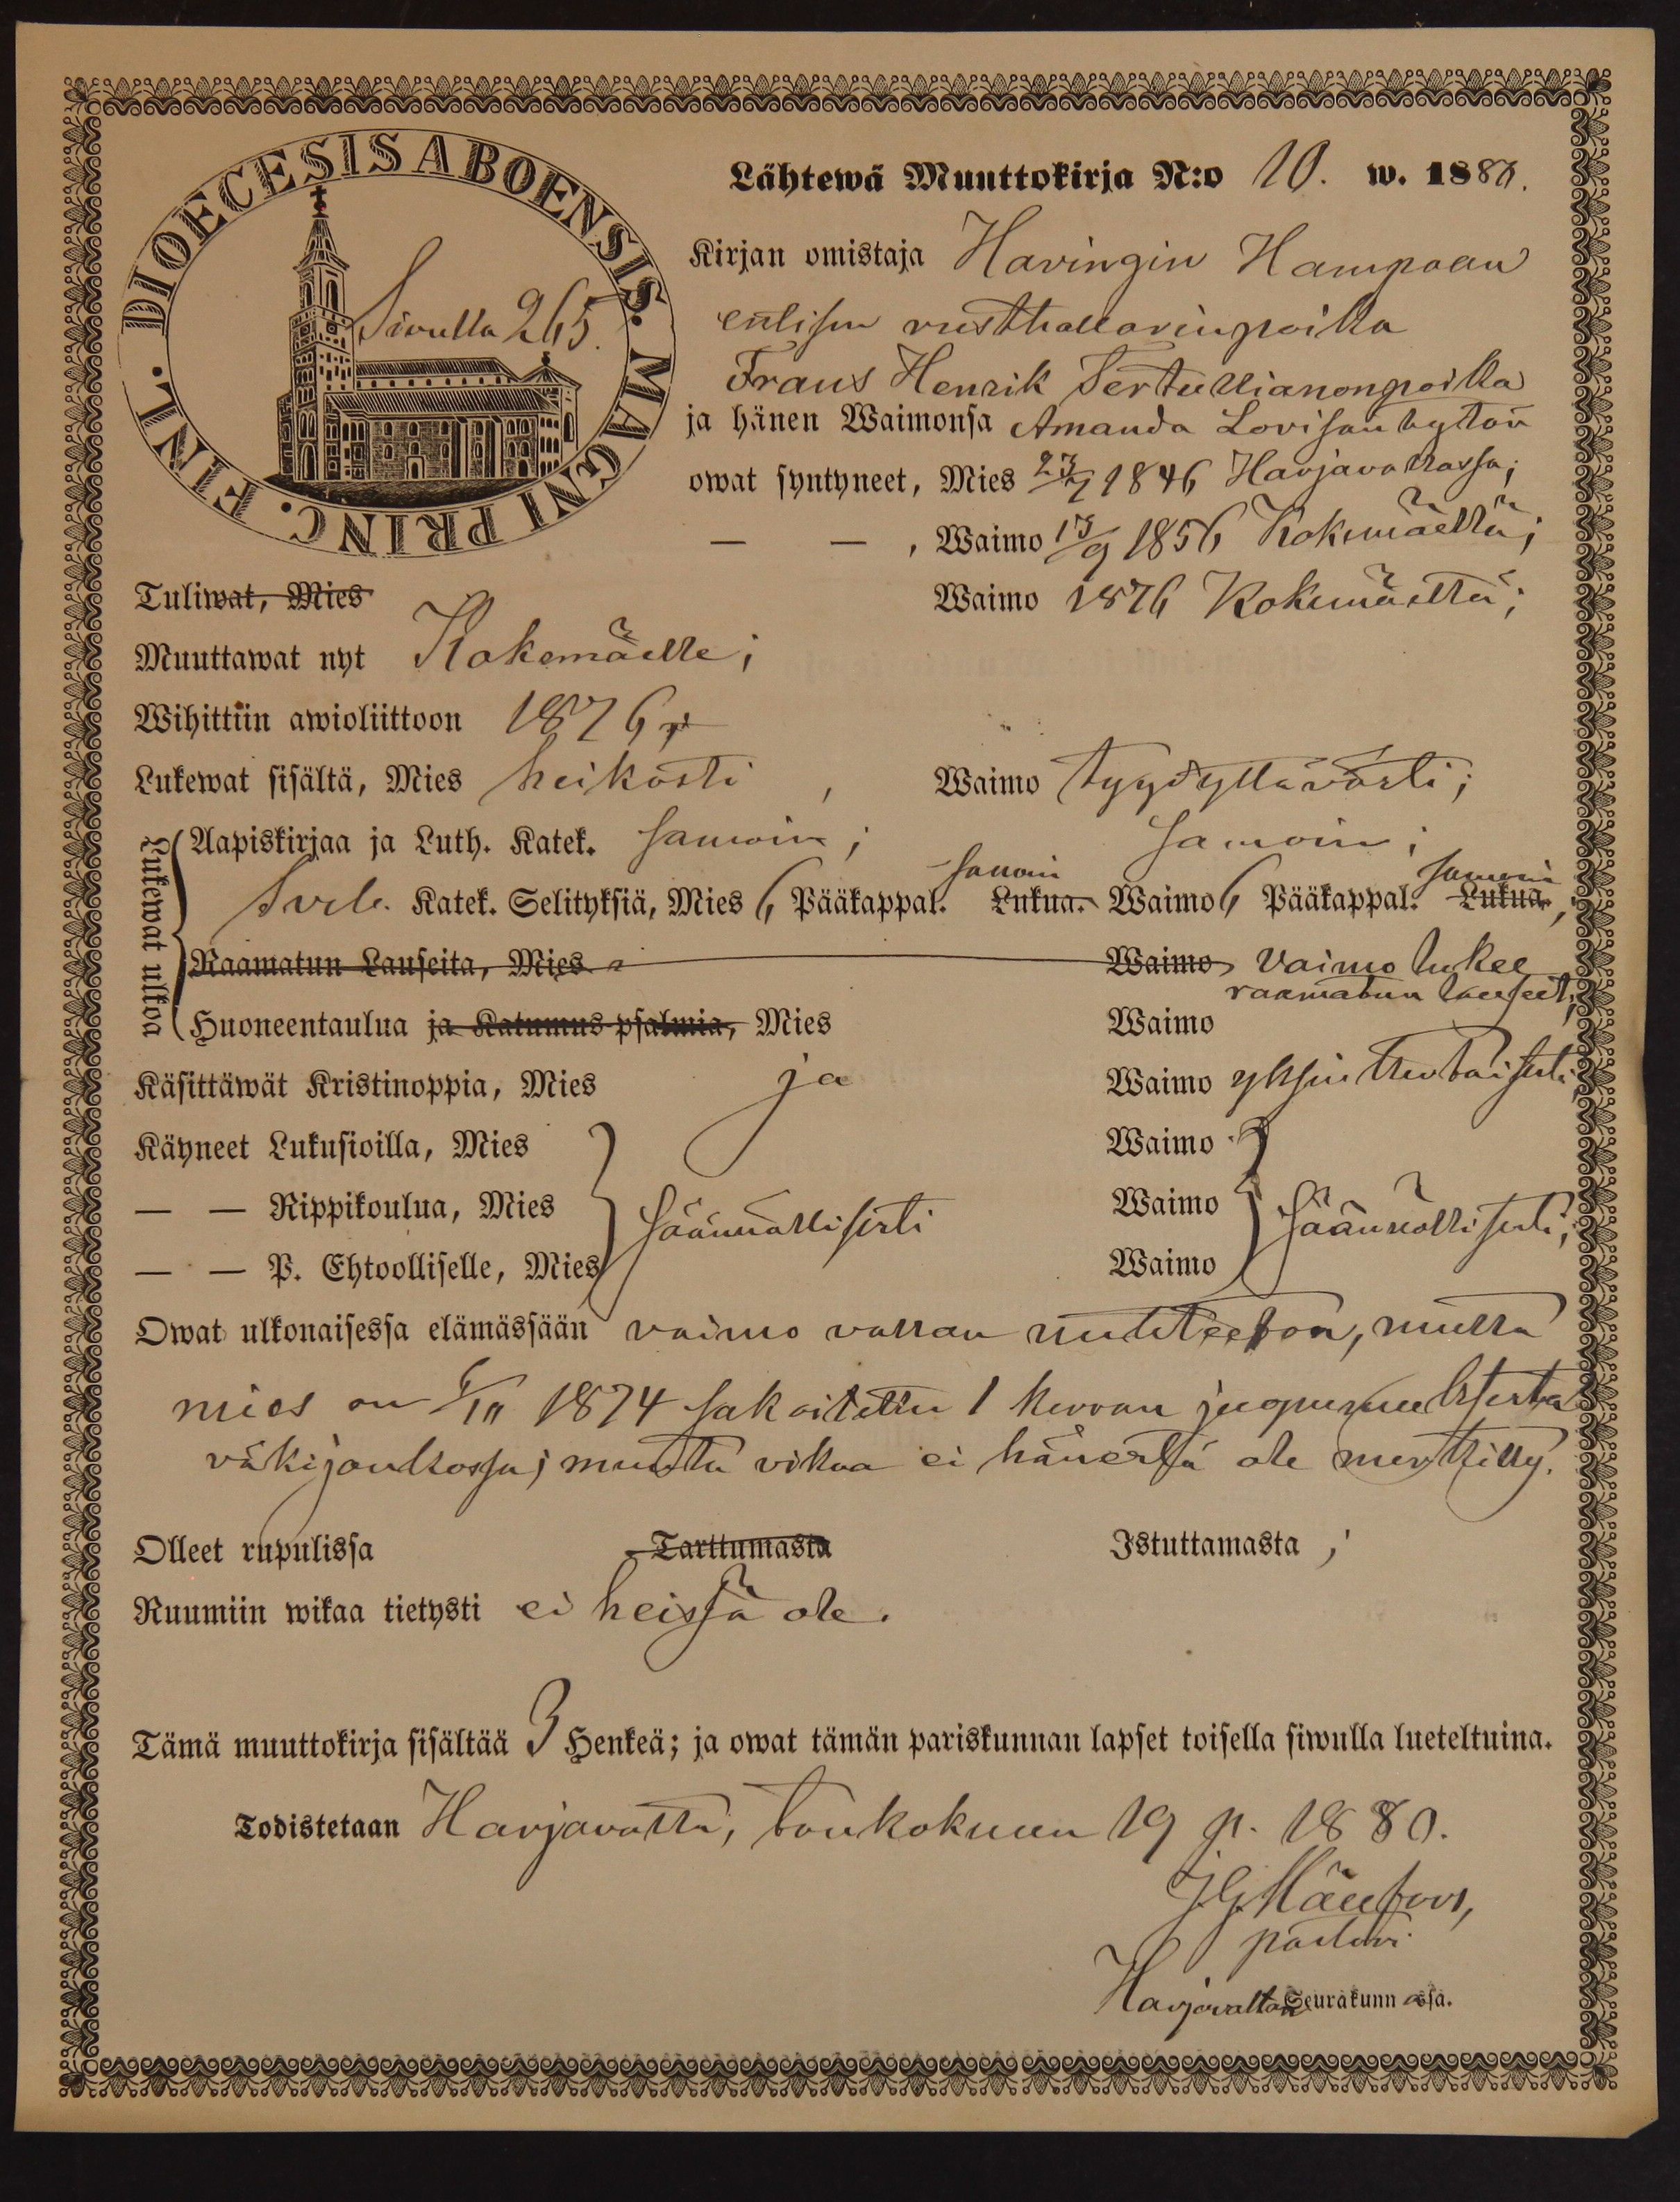 DIOECESIS ABOENSIS. MAGNI PRINC. FINL.
Sivulla 265.
Lähtewä Muuttokirja N:o 10. w. 1880.
Kirjan omistaja Havingin Hampaan
entisen rusthollarinpoika
Frans Henrik Tertullianonpoika
ja hänen Waimonsa Amanda Lovisan tytön
owat syntyneet, Mies 23/7 1846 Harjavallassa;
— — , Waimo 13/9 1856 Kokemäellä;
Tuliwat, Mies Waimo 1876 Kokemäeltä;
Muuttawat nyt Kokemäelle;
Wihittiin awioliittoon 1876;
Lukewat sisältä, Mies heikosti , Waimo tyydyttävästi;
Lukewat ulkoa
Aapiskirjaa ja Luth. Katek. samoin; samoin;
samoin samoin
Svib. Katek. Selityksiä, Mies 6 Pääkappal. Lukua. Waimo 6 Pääkappal. Lukua.;
Raamatun Lauseita, Mies Waimo Vaimo lukee
raamatun lauseit;
Huoneentaulua ja Katumus-psalmia, Mies Waimo
Käsittäwät Kristinoppia, Mies ja Waimo yksinkertaisesti;
Käyneet Lukusioilla, Mies Waimo
— — Rippikoulua, Mies säännöllisesti Waimo säännöllisesti;
— — P. Ehtoolliselle, Mies Waimo
Owat ulkonaisessa elämässään vaimo vallan nuhteeton, mutta
mies on 1874 sakoitettu 1 kerran juopumuksesta
väkijoukossa; muuta vikaa ei hänessä ole merkitty.
Olleet rupulissa Tarttumasta Istuttamasta ;
Ruumiin wikaa tietysti ei heissä ole.
Tämä muuttokirja sisältää 3 Henkeä; ja owat tämän pariskunnan lapset toisella siwulla lueteltuina.
Todistetaan Harjavalta, toukokuun 19 p. 1880.
pastori
Harjavallan Seurakunnassa.